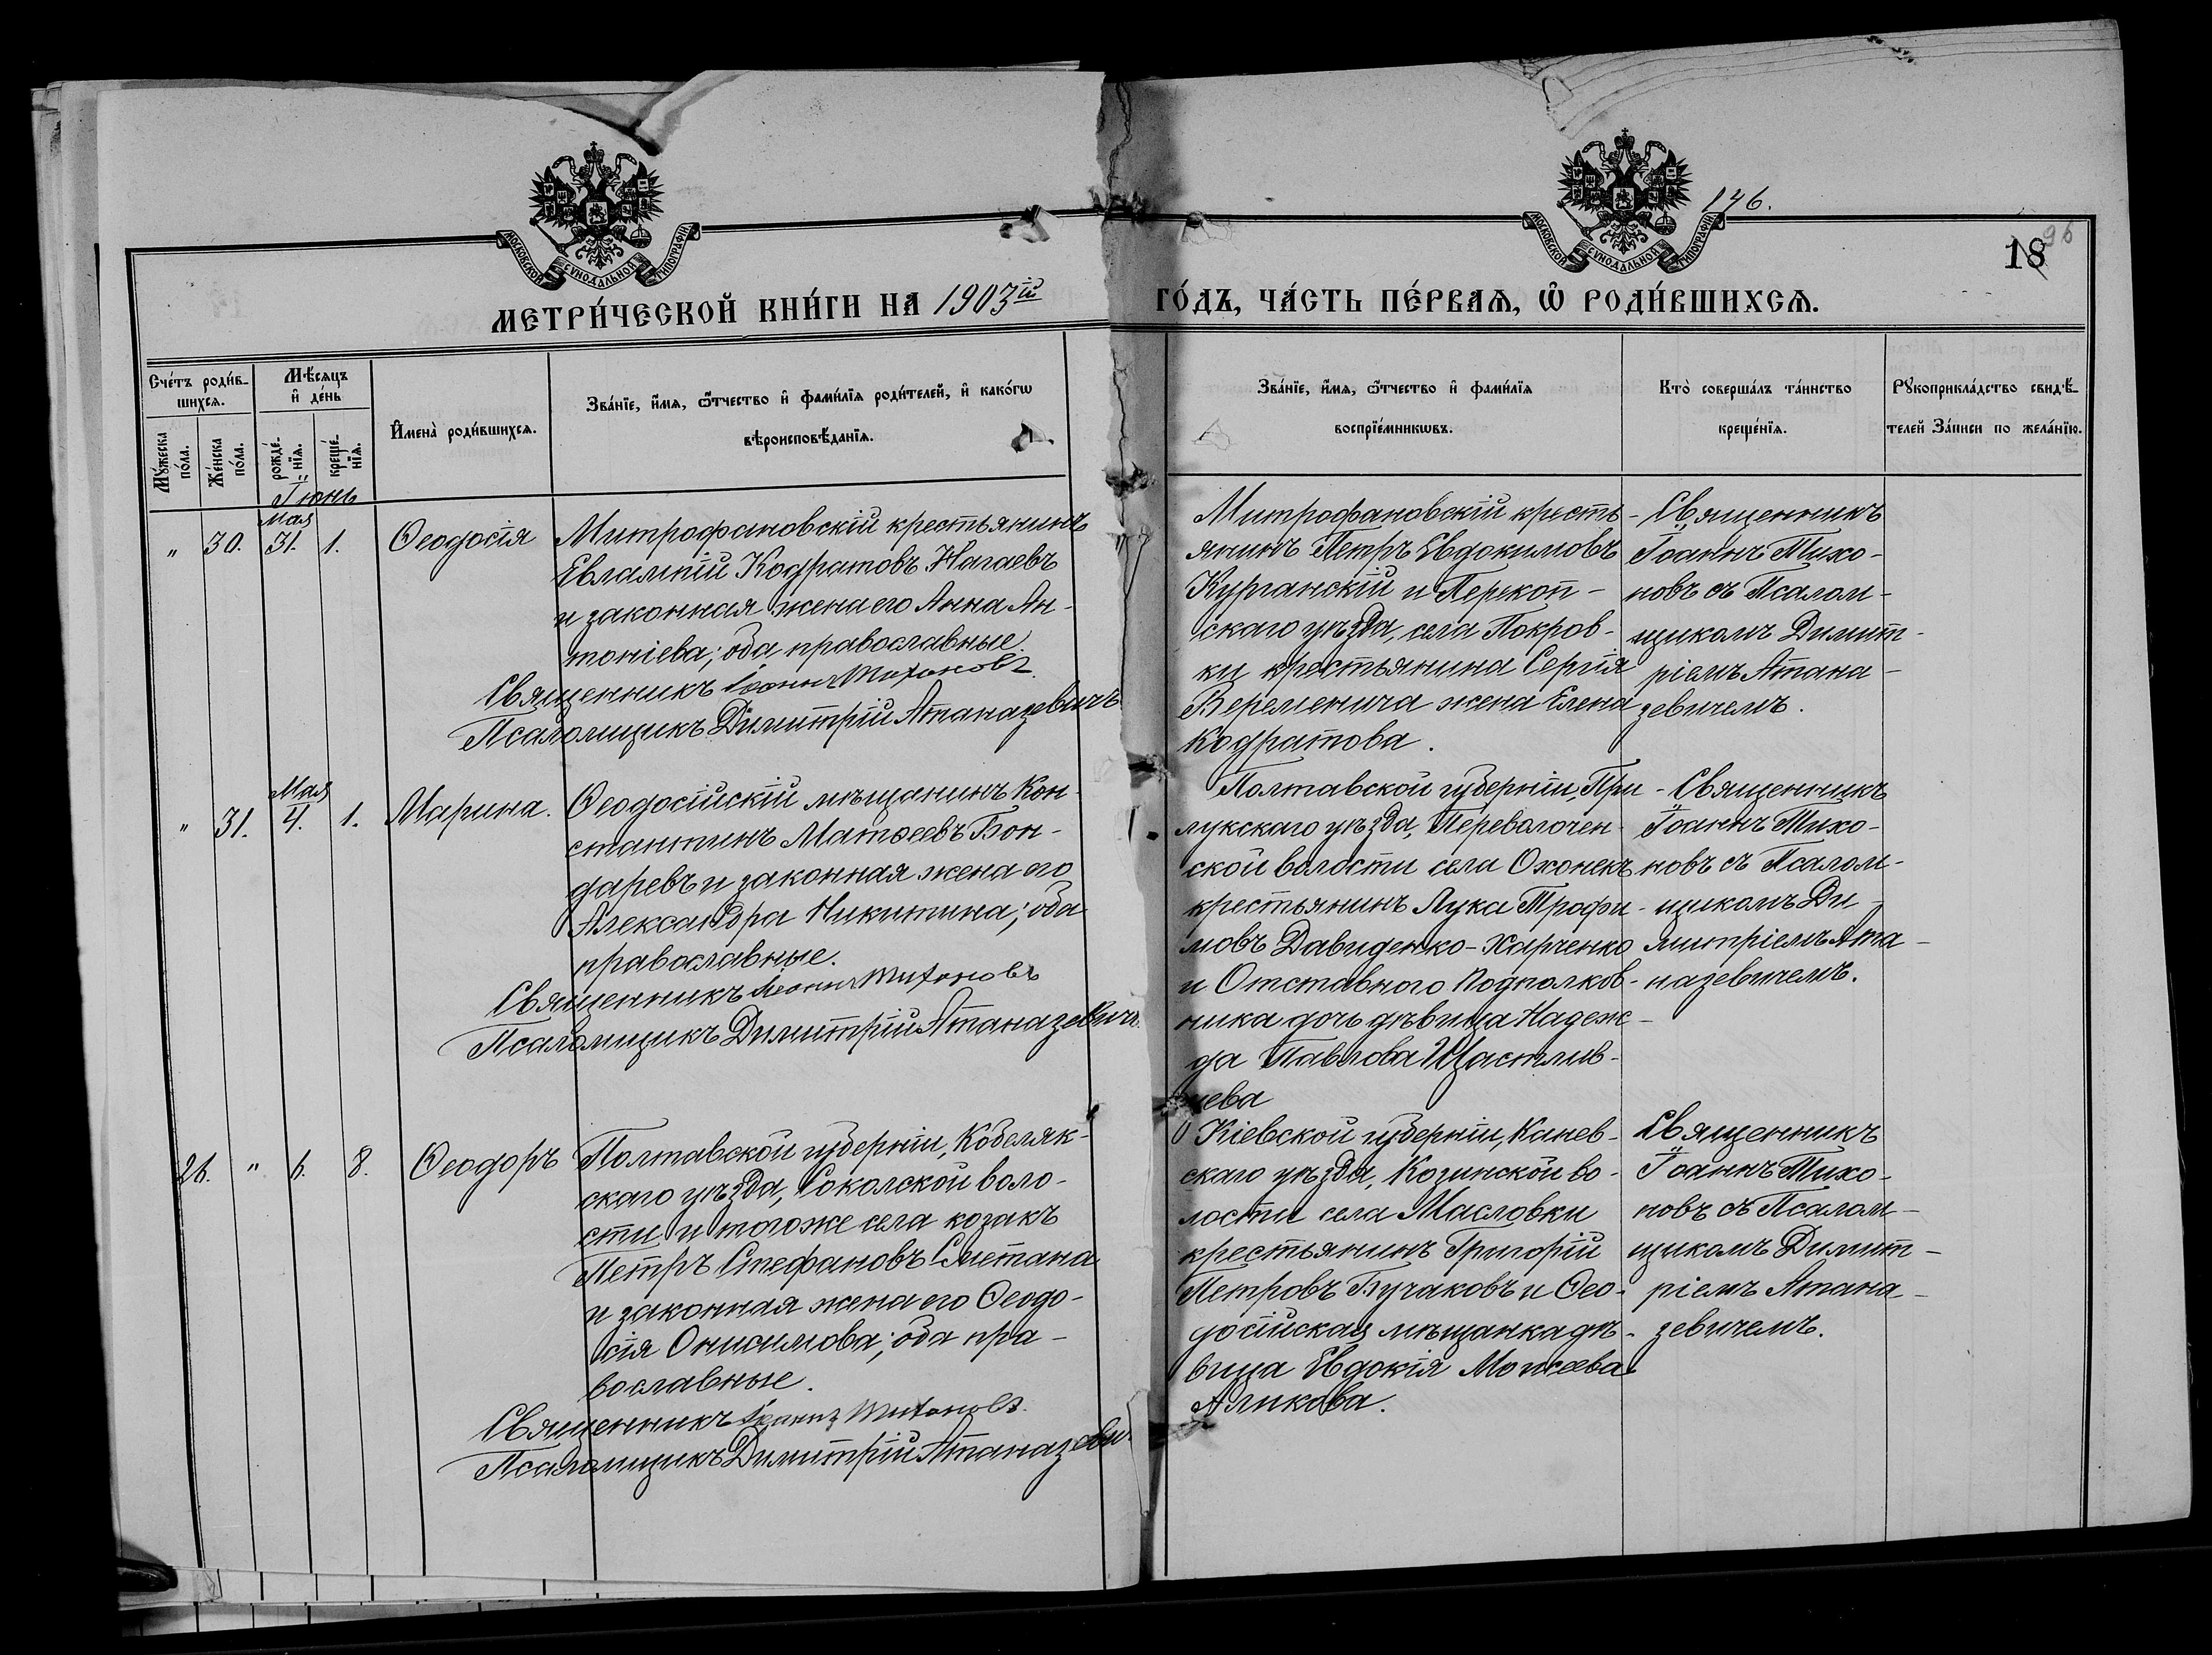 146.
18
96
МОСКОВСКОЙ СѴНОДАЛЬНОЙ ТИПОГРАФІИ
МОСКОВСКОЙ СѴНОДАЛЬНОЙ ТИПОГРАФІИ
МЕТРИ́ЧЕСКОЙ КНИ́ГИ НА 1903ій ГО́ДЪ, ЧА́СТЬ ПЕ́РВАѦ, Ѡ҆ РОДИ́ВШИХСѦ.
Сче́тъ роди́в-
шихсѧ.
Мꙋ́жеска
по́ла.
Же́нска
по́ла.
Мѣ́сѧцъ
и҆ де́нь
рожде́-
нїѧ.
креще́-
нїѧ.
И҆мена̀ роди́вшихсѧ.
Зва́нїе, и҆́мѧ, ѻ҆́тчество и҆ фами́лїѧ роди́телей, и҆ како́гѡ
вѣроисповѣ́данїѧ.
Зва́нїе, и҆́мѧ, ѻ҆́тчество и҆ фами́лїѧ
воспрїе́мникѡвъ.
Кто̀ соверша́лъ та́инство
креще́нїѧ.
Рꙋкоприкла́дство свидѣ́-
телей за́писи по жела́нїю.
Іюнь
Мая
" 30. 31. 1. Ѳеодосія
Митрофановскій крестьянинъ
Евлампій Кодратовъ Нагаевъ
и законная жена его Анна Ан-
тоніева; оба православные.
Священникъ Іоаннъ Тихоновъ
Псаломщикъ Димитрій Атаназевичъ
Митрофановскій кресть-
янинъ Петръ Евдокимовъ
Курганскій и Перекоп-
скаго уѣзда, села Покров-
ки крестьянина Сергія
Веременича жена Елена
Кодратова.
Священникъ
Іоаннъ Тихо-
новъ съ Псалом-
щикомъ Димит-
ріемъ Атана-
зевичемъ.
Мая
" 31. 4. 1. Марина.
Ѳеодосійскій мѣщанинъ Кон-
стантинъ Матѳеевъ Бон-
даревъ и законная жена его
Александра Никитина; оба
православные.
Священникъ Іоаннъ Тихоновъ
Псаломщикъ Димитрій Атаназевичъ
Полтавской губерніи, При-
лукскаго уѣзда, Переволочен-
ской волости села Охонекъ
крестьянинъ Лука Трофи-
мовъ Давиденко-Харченко
и Отставного Подполков-
ника дочь дѣвица Надеж-
да Павлова Щастлив-
цева
Священникъ
Іоаннъ Тихо-
новъ съ Псалом-
щикомъ Ди-
митріемъ Ата-
назевичемъ.
26. " 6. 8. Ѳеодоръ
Полтавской губерніи, Кобеляк-
скаго уѣзда, Соколской воло-
сти и тогоже села козакъ
Петръ Стефановъ Сметана
и законная жена его Ѳеодо-
сія Онисимова; оба пра-
вославные.
Священникъ Іоаннъ Тихоновъ
Псаломщикъ Димитрій Атаназеви
Кіевской губерніи, Канев-
скаго уѣзда, Козинской во-
лости села Масловки
крестьянинъ Григорій
Петровъ Бучаковъ и Ѳео-
досійская мѣщанка дѣ-
вица Евдокія Моисеева
Аликова.
Священникъ
Іоаннъ Тихо-
новъ съ Псалом-
щикомъ Димит-
ріемъ Атана-
зевичемъ.